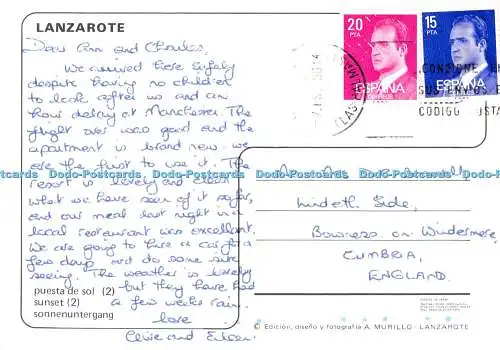 LANZAROTE
Dear Ann and Charles,
We arrived here safely
despite having no children
to look after us and an
hour delay at Manchester. The
flight over was good and the
apartment is brand new - we
are the first to use it. The
resort is lovely and clean
what we have seen of it so far,
and our meal last night in a
local restaurant was excellent.
We are going to hire a car for a
few days and do some site
seeing. The weather is lovely
but they have had
a few weeks rain.
love
puesta de sol (2)
sunset (2)
sonnenuntergang
20
PTA
ESPAÑA
CORREOS
15
PTA
ESPAÑA
LAS PALMAS
CODIGO
Lindeth Side,
Bowness on Windermere
CUMBRIA,
ENGLAND.
© Edición, diseño y fotografía A. MURILLO - LANZAROTE
Dodo-Postcards Dodo-Postcards Dodo-Postcards Dodo-Postcards